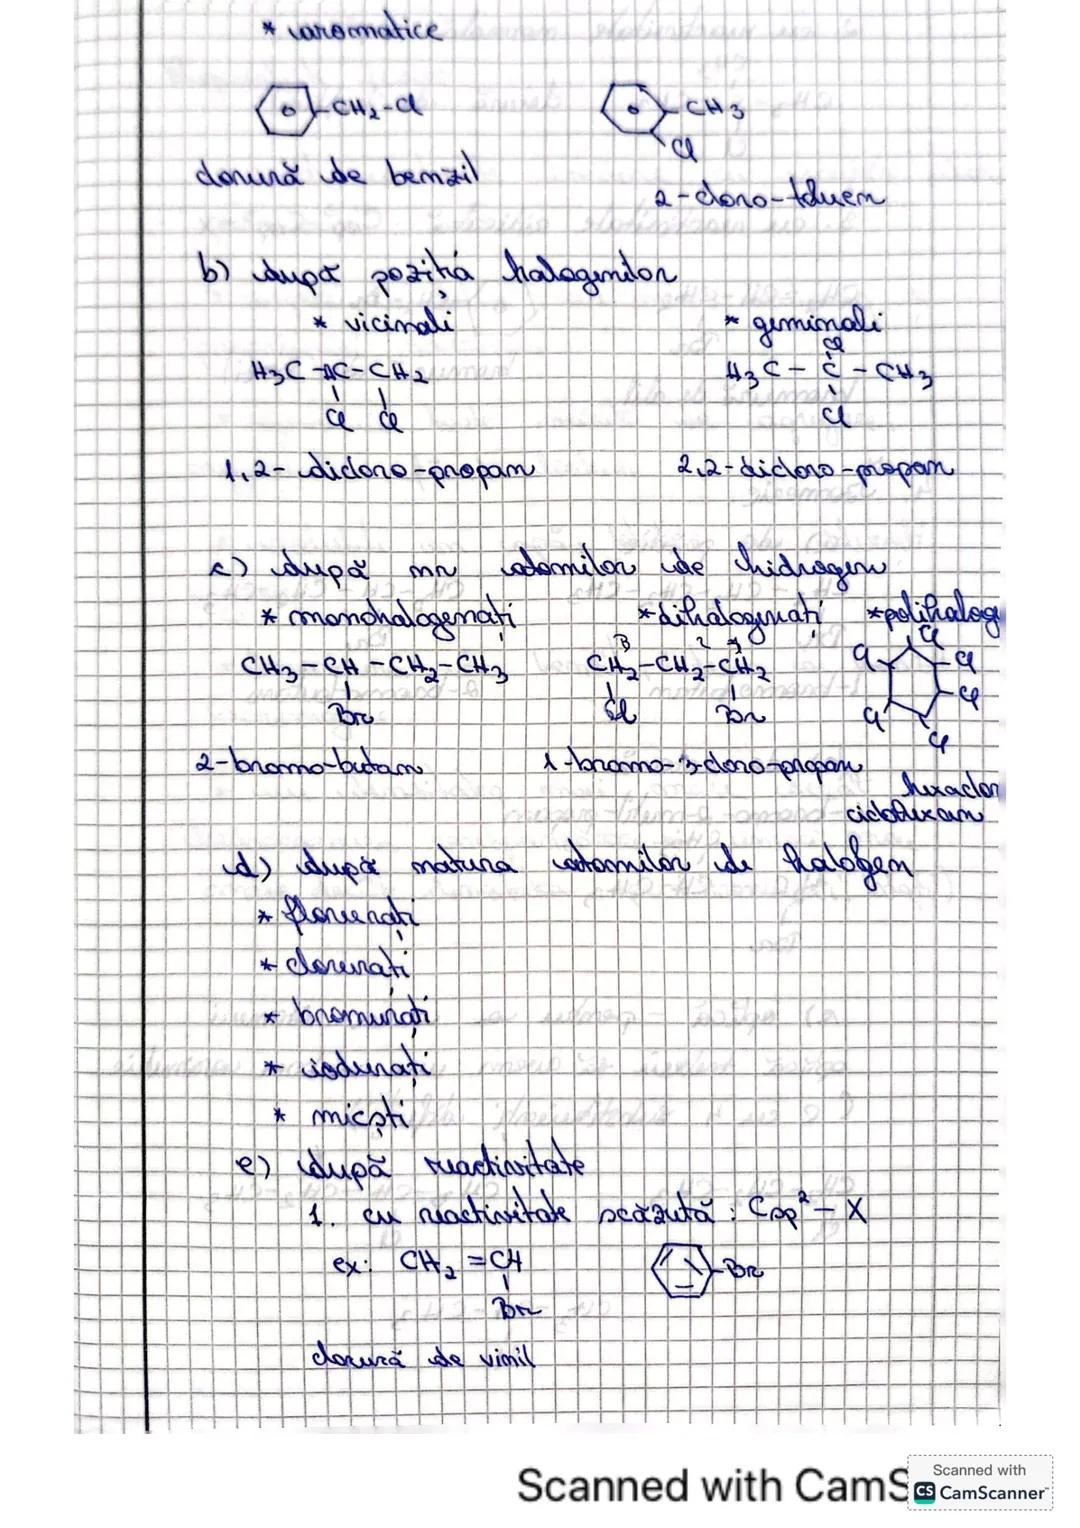 * aromatice
CH2-Cl CH3
Cl
clorură de benzil
2-cloro-toluen
b) după poziția halogenilor
* vicinali * geminali
Cl
H3C-HC-CH2 H3C-C-CH3
Cl Cl Cl
1,2-dicloro-propan 2,2-dicloro-propan
c) după nr atomilor de hidrogen
* monohalogenați * dihalogenați * polihalog
3 2 1 Cl
CH3-CH-CH2-CH3 CH2-CH2-CH2 Cl Cl
Cl
Br Cl Br Cl
Cl
2-bromo-butan 1-bromo-3-cloro-propan
hexaclor
ciclohexan
d) după natura atomilor de halogen
* florurați
* clorurați
* bromurați
* iodurați
* micști
e) după reactivitate
1. cu reactivitate scăzută : Csp² - X
ex: CH2=CH Br
Br
clorură de vinil
Scanned with CamS
Scanned with
CS CamScanner